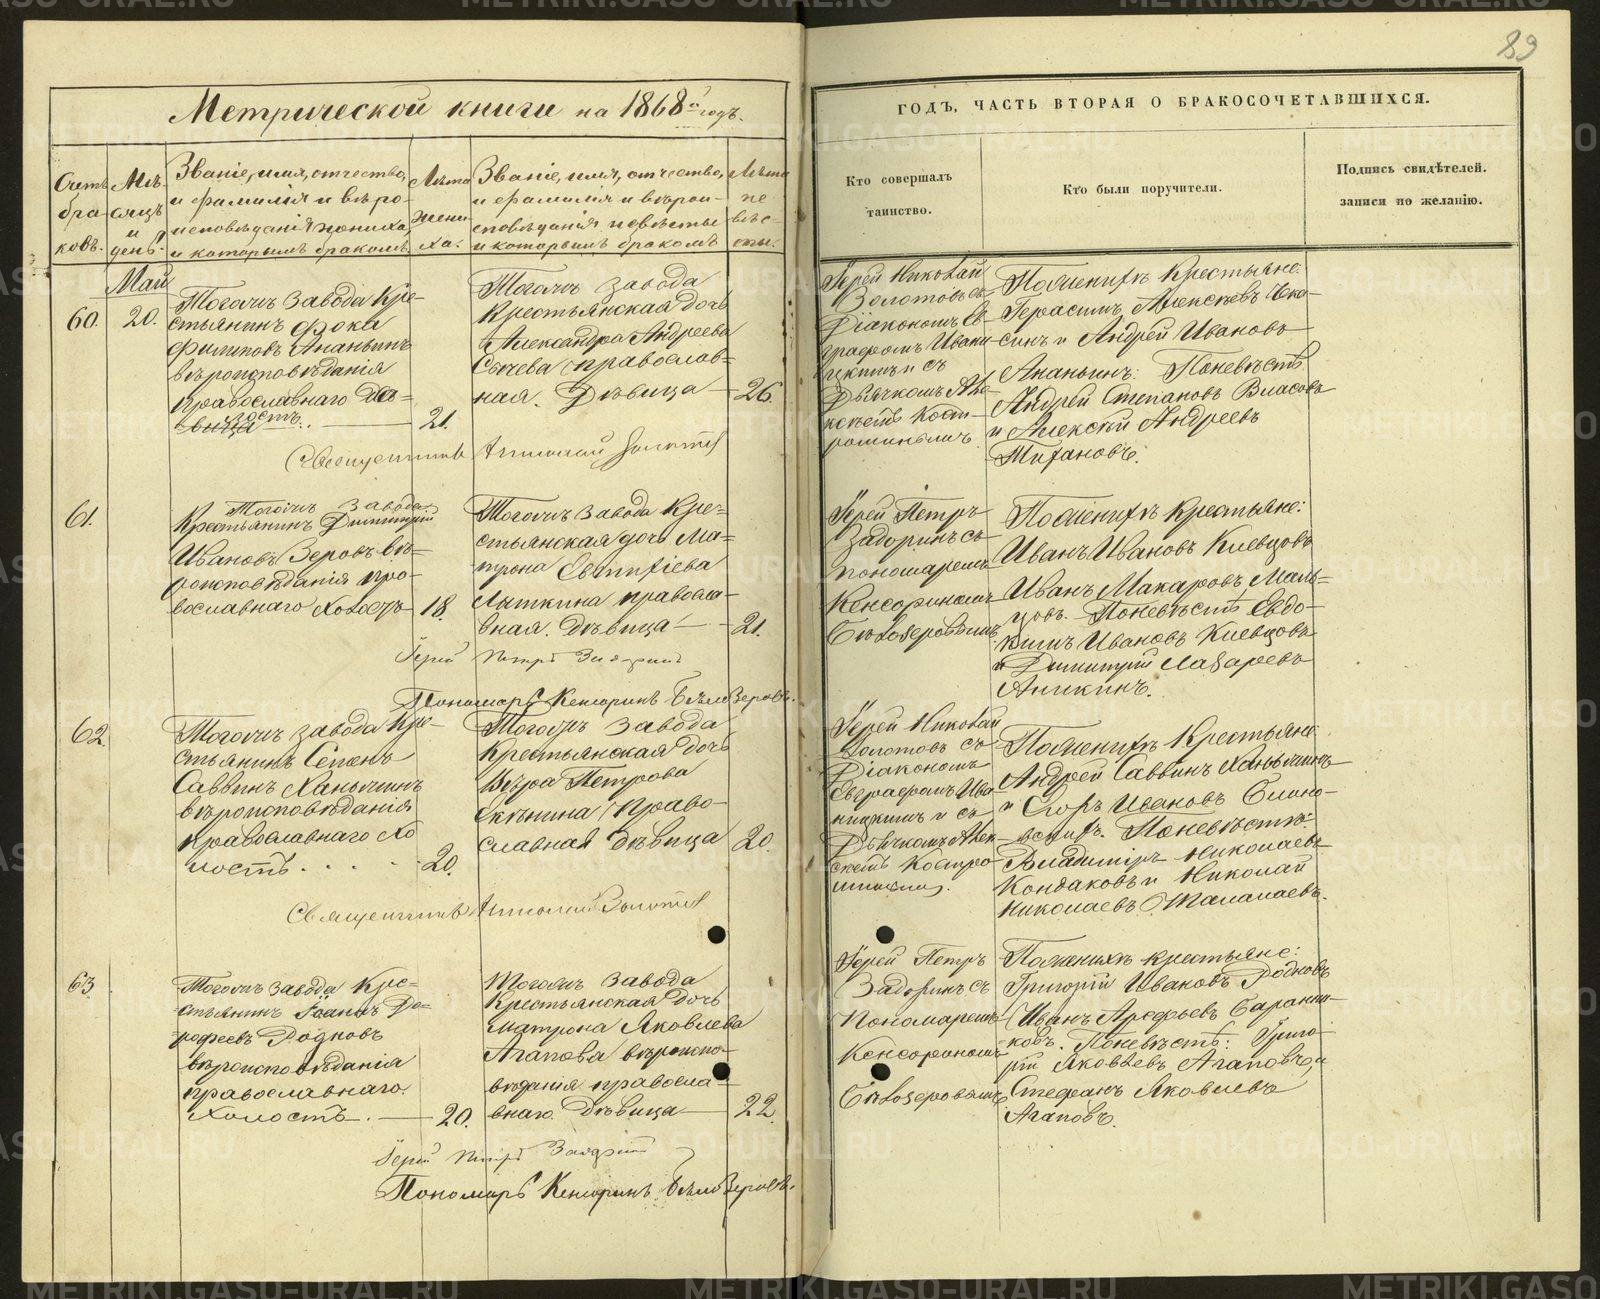 89
Метрической книги на 1868й годъ.
ГОДЪ, ЧАСТЬ ВТОРАЯ О БРАКОСОЧЕТАВШИХСЯ.
Счетъ
бра
ковъ.
Мѣ-
сяцъ
и
день.
Званіе, имя, отчество,
и фамилія и вѣро-
исповѣданія жениха,
и которымъ бракомъ
Лѣта
жени
ха.
Званіе, имя, отчество,
и фамилія и вѣрои-
сповѣданія невѣсты
и которымъ бракомъ
Лѣта
не
вѣс-
ты.
Кто совершалъ
таинство.
Кто были поручители.
Подпись свидѣтелей.
записи по желанію.
Май
60.
20.
Тогожъ завода Кре-
стьянинъ Фока
Филиповъ Ананьинъ
вѣроисповѣданія
православнаго
21.
Тогожъ завода
Крестьянская дочь
Александра Андреева
Сычева православ-
ная. Дѣвица
26
Іерей Николай
Золотовъ съ
Діакономъ Ев-
графомъ Ивани-
цкимъ и съ
Дьячкомъ Але-
ксѣемъ Кост-
роминымъ
По женихѣ Крестьяне:
Герасимъ Алексѣевъ
и Андрей Ивановъ
Ананьинъ: По невѣстѣ
Андрей Степановъ Власовъ
и Алексѣй Андреевъ
Священникъ Николай Золотовъ
61.
Тогожъ завода
Крестьянинъ Димитрій
Ивановъ Зеровъ вѣ-
роисповѣданія пра-
вославнаго Холостъ
18.
Тогожъ завода Кре-
стьянская дочь Ма-
трона
Лыткина правосла-
вная. Дѣвица
21.
Іерей Петръ
Задоринъ съ
пономаремъ
Кенсориномъ
Бѣлозеровымъ
По женихѣ Крестьяне:
Иванъ Ивановъ Киевцовъ
Иванъ Макаровъ Маль-
цовъ. По невѣстѣ Евдо-
кимъ Ивановъ Киевцовъ
и Димитрій Лазаревъ
Аникинъ.
Іерей Петръ Задоринъ
Пономарь Кенсоринъ Бѣлозеровъ.
62.
Тогожъ завода Кре-
стьянинъ Семенъ
Саввинъ Ханычинъ
вѣроисповѣданія
православнаго Хо
лостъ
20.
Тогожъ завода
Крестьянская дочь
Вѣра Петрова
Право-
славная Дѣвица
20.
Іерей Николай
Золотовъ съ
Діакономъ
Евграфомъ Ива-
ницкимъ и съ
Дьячкомъ Алек-
сѣемъ Костро-
минымъ.
По женихѣ Крестьяне
Андрей Саввинъ Ханычинъ
и Егоръ Ивановъ
По невѣстѣ:
Владимиръ Николаевъ
Кондаковъ и Николай
Николаевъ Шаламаевъ.
Священникъ Николай Золотовъ
63.
Тогожъ завода Кре-
стьянинъ Іоаннъ До-
рофеевъ Родновъ
вѣроисповѣданія
православнаго.
Холостъ.
20.
Тогожъ завода
Крестьянская дочь
Матрона Яковлева
Агапова вѣроиспо-
вѣданія правосла-
внаго Дѣвица
22.
Іерей Петръ
Задоринъ съ
Пономаремъ
Кенсориномъ
Бѣлозеровымъ
По женихѣ крестьяне:
Григорій Ивановъ Родновъ
Иванъ Арефьевъ Баранни-
ковъ. По невѣстѣ: Григо-
рій Яковлевъ Агаповъ, и
Стефанъ Яковлевъ
Агаповъ.
Іерей Петръ Задоринъ
Пономарь Кенсоринъ Бѣлозеровъ.
METRIKI.GASO-URAL.RU